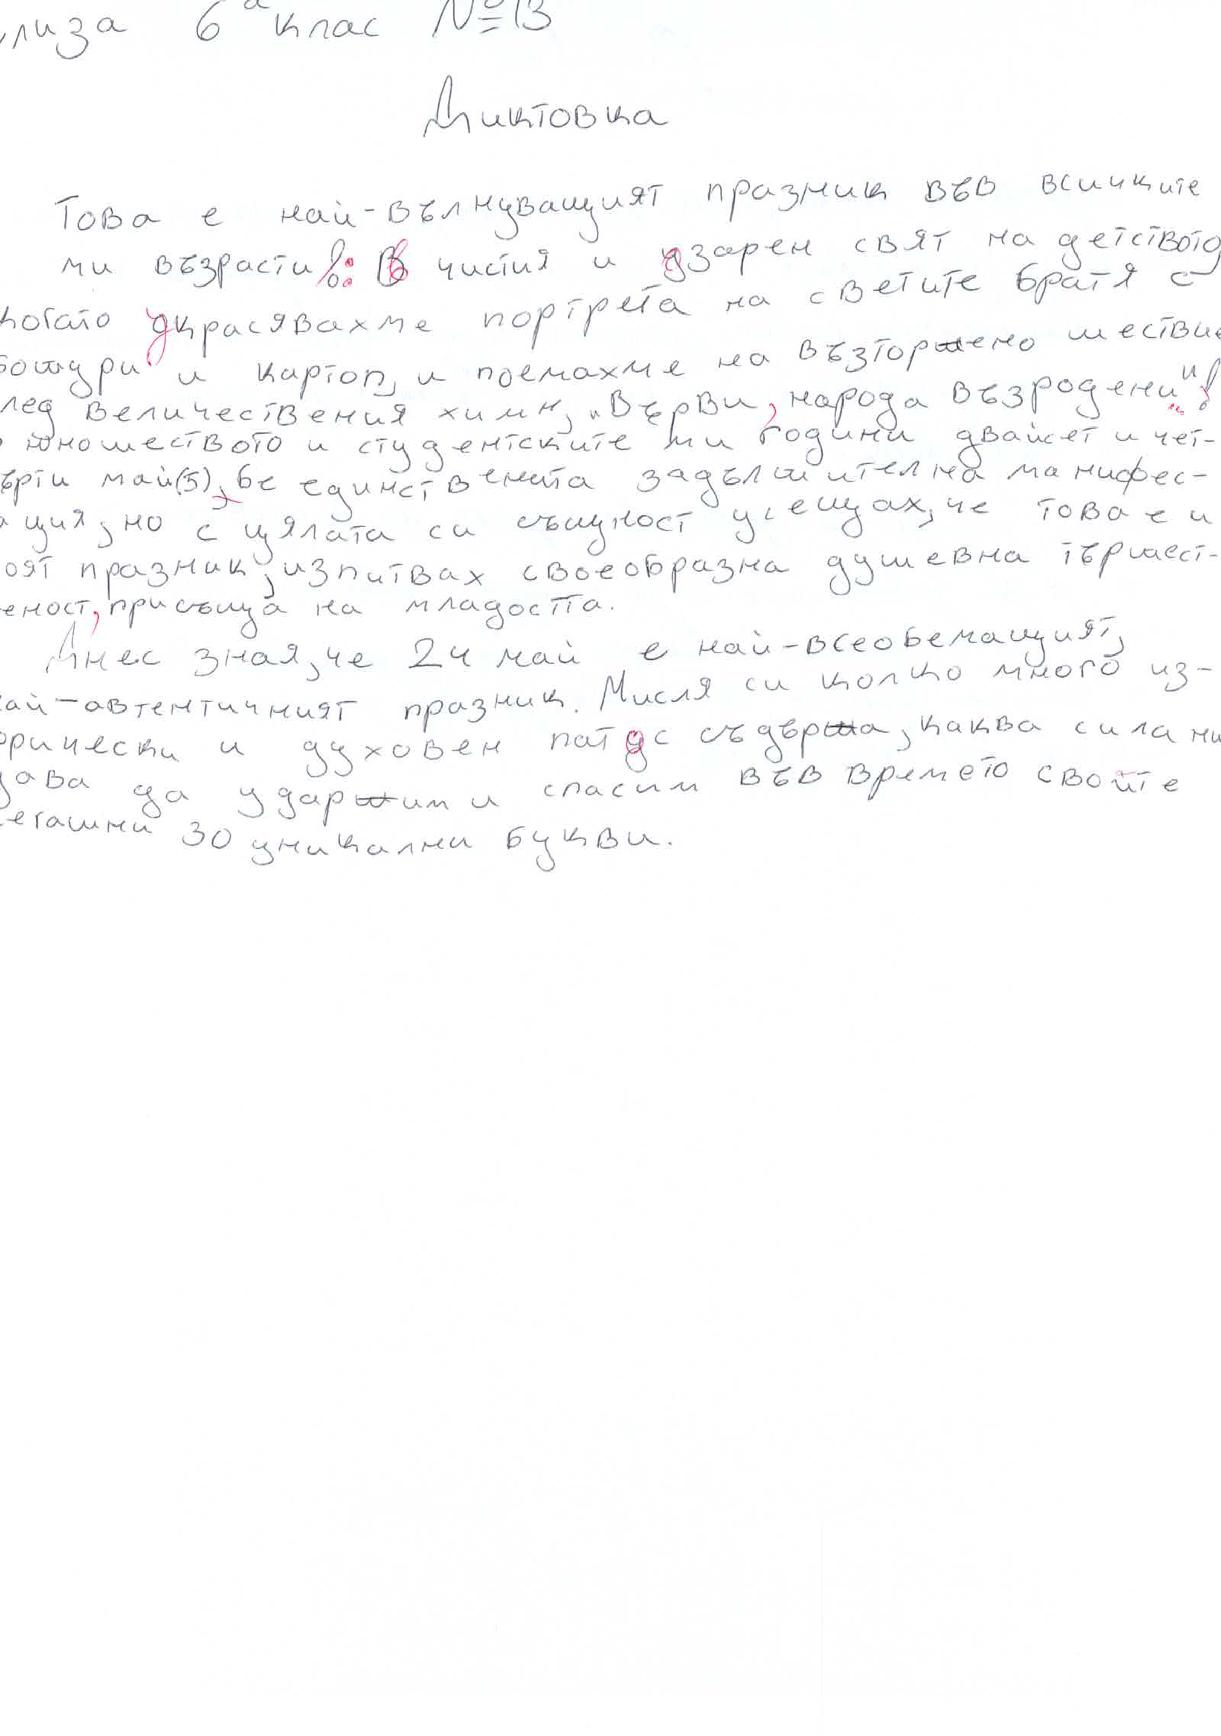 лиза 6 а клас №13
Диктовка
Това е най-вълнуващият празник във всичките
ми възрасти: в чистия и узарен свят на детството,
когато украсявахме портрета на светите братя с
божури и картоп, и поемахме на възторжено шествие
след величествения химн, „Върви, народа възродени"!
юношеството и студентските ми години двайсет и чет-
върти май(5), бе единствената задължителна манифес-
ация, но с цялата си същност усещах, че това е и
оят празник, изпитвах своеобразна душевна тържест-
еност, присъща на младостта.
Днес зная, че 24 май е най-всеобемащият,
ай-автентичният празник. Мисля си колко много из-
орически и духовен патос съдържа, каква сила ни
дава да ударжим и спасим във времето свойте
сегашни 30 уникални букви.